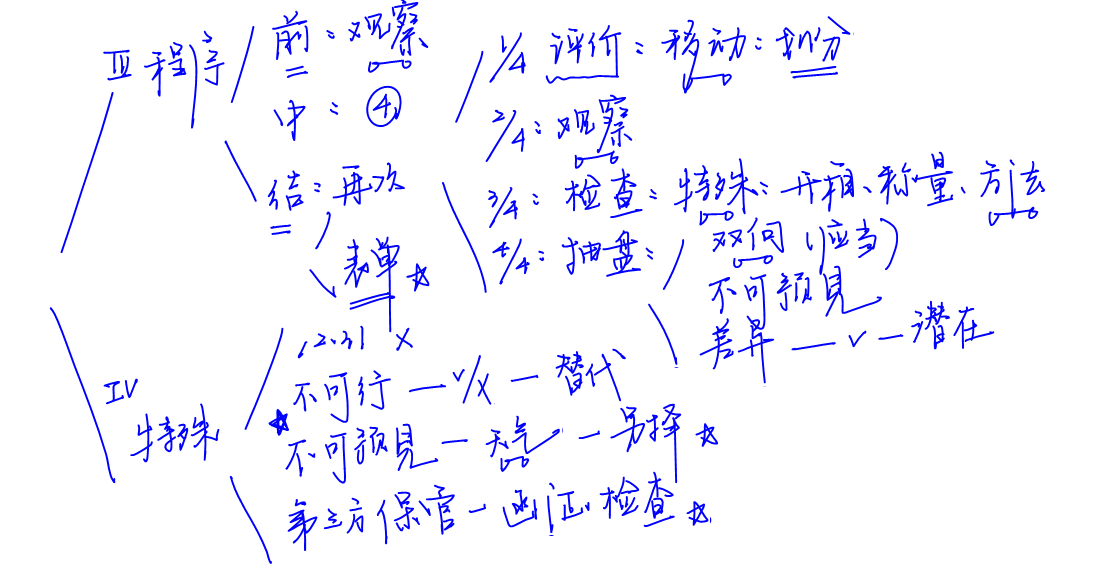 III 程序
前：观察
中：④
结：再次
表单☆
1/4 评价：移动：划分
2/4：观察
3/4：检查：特殊：开箱、称量、方法
4/4：抽盘：双向（应当）
不可预见
差异 — √ — 潜在
IV 特殊
12.31 ×
不可行 — √/× — 替代
☆不可预见 — 天气 — 另择☆
第三方保管 — 函证、检查☆